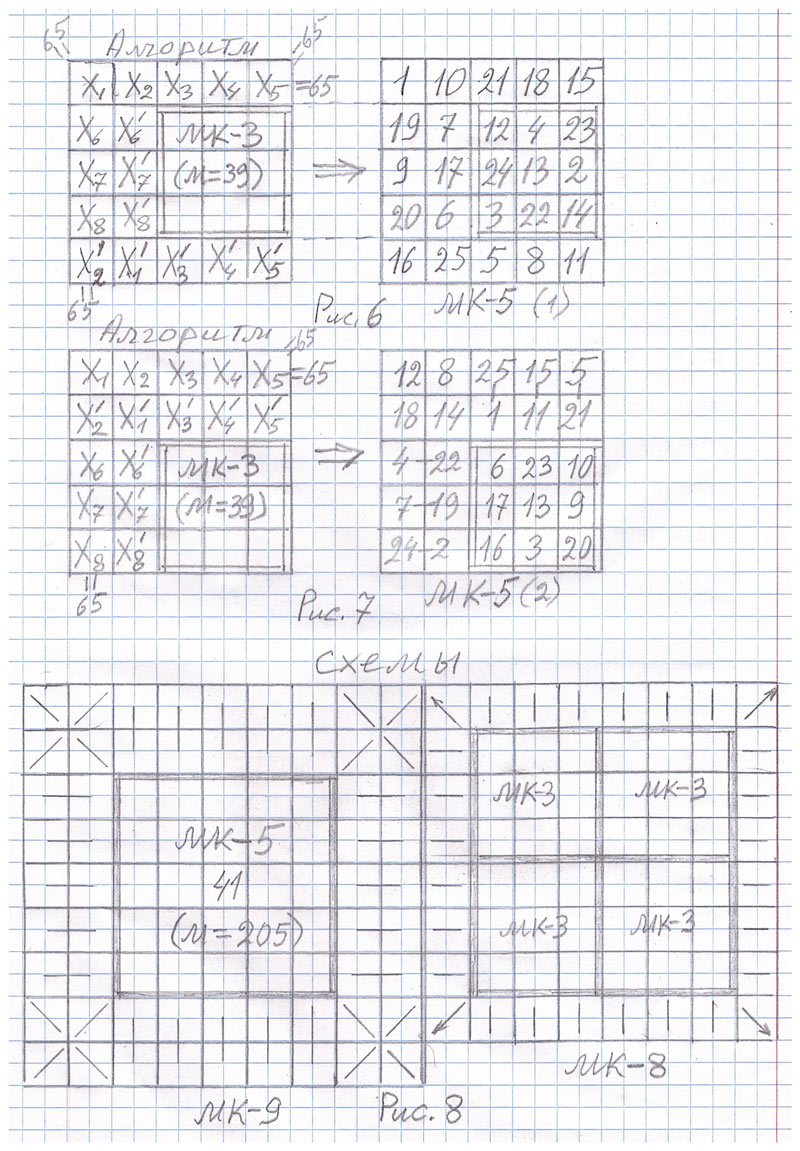 65 Алгоритм 65
X₁ X₂ X₃ X₄ X₅ =65
X₆ X₆′ МК-3
X₇ X₇′ (М=39)
X₈ X₈′
X₂′ X₁′ X₃′ X₄′ X₅′
65
⇒
1 10 21 18 15
19 7 12 4 23
9 17 24 13 2
20 6 3 22 14
16 25 5 8 11
Рис. 6 МК-5 (1)
Алгоритм 65
X₁ X₂ X₃ X₄ X₅ =65
X₂′ X₁′ X₃′ X₄′ X₅′
X₆ X₆′ МК-3
X₇ X₇′ (М=39)
X₈ X₈′
65
⇒
12 8 25 15 5
18 14 1 11 21
4-22 6 23 10
7-19 17 13 9
24-2 16 3 20
Рис. 7 МК-5 (2)
Схемы
МК-5
41
(М=205)
МК-3 МК-3
МК-3 МК-3
МК-9 Рис. 8 МК-8